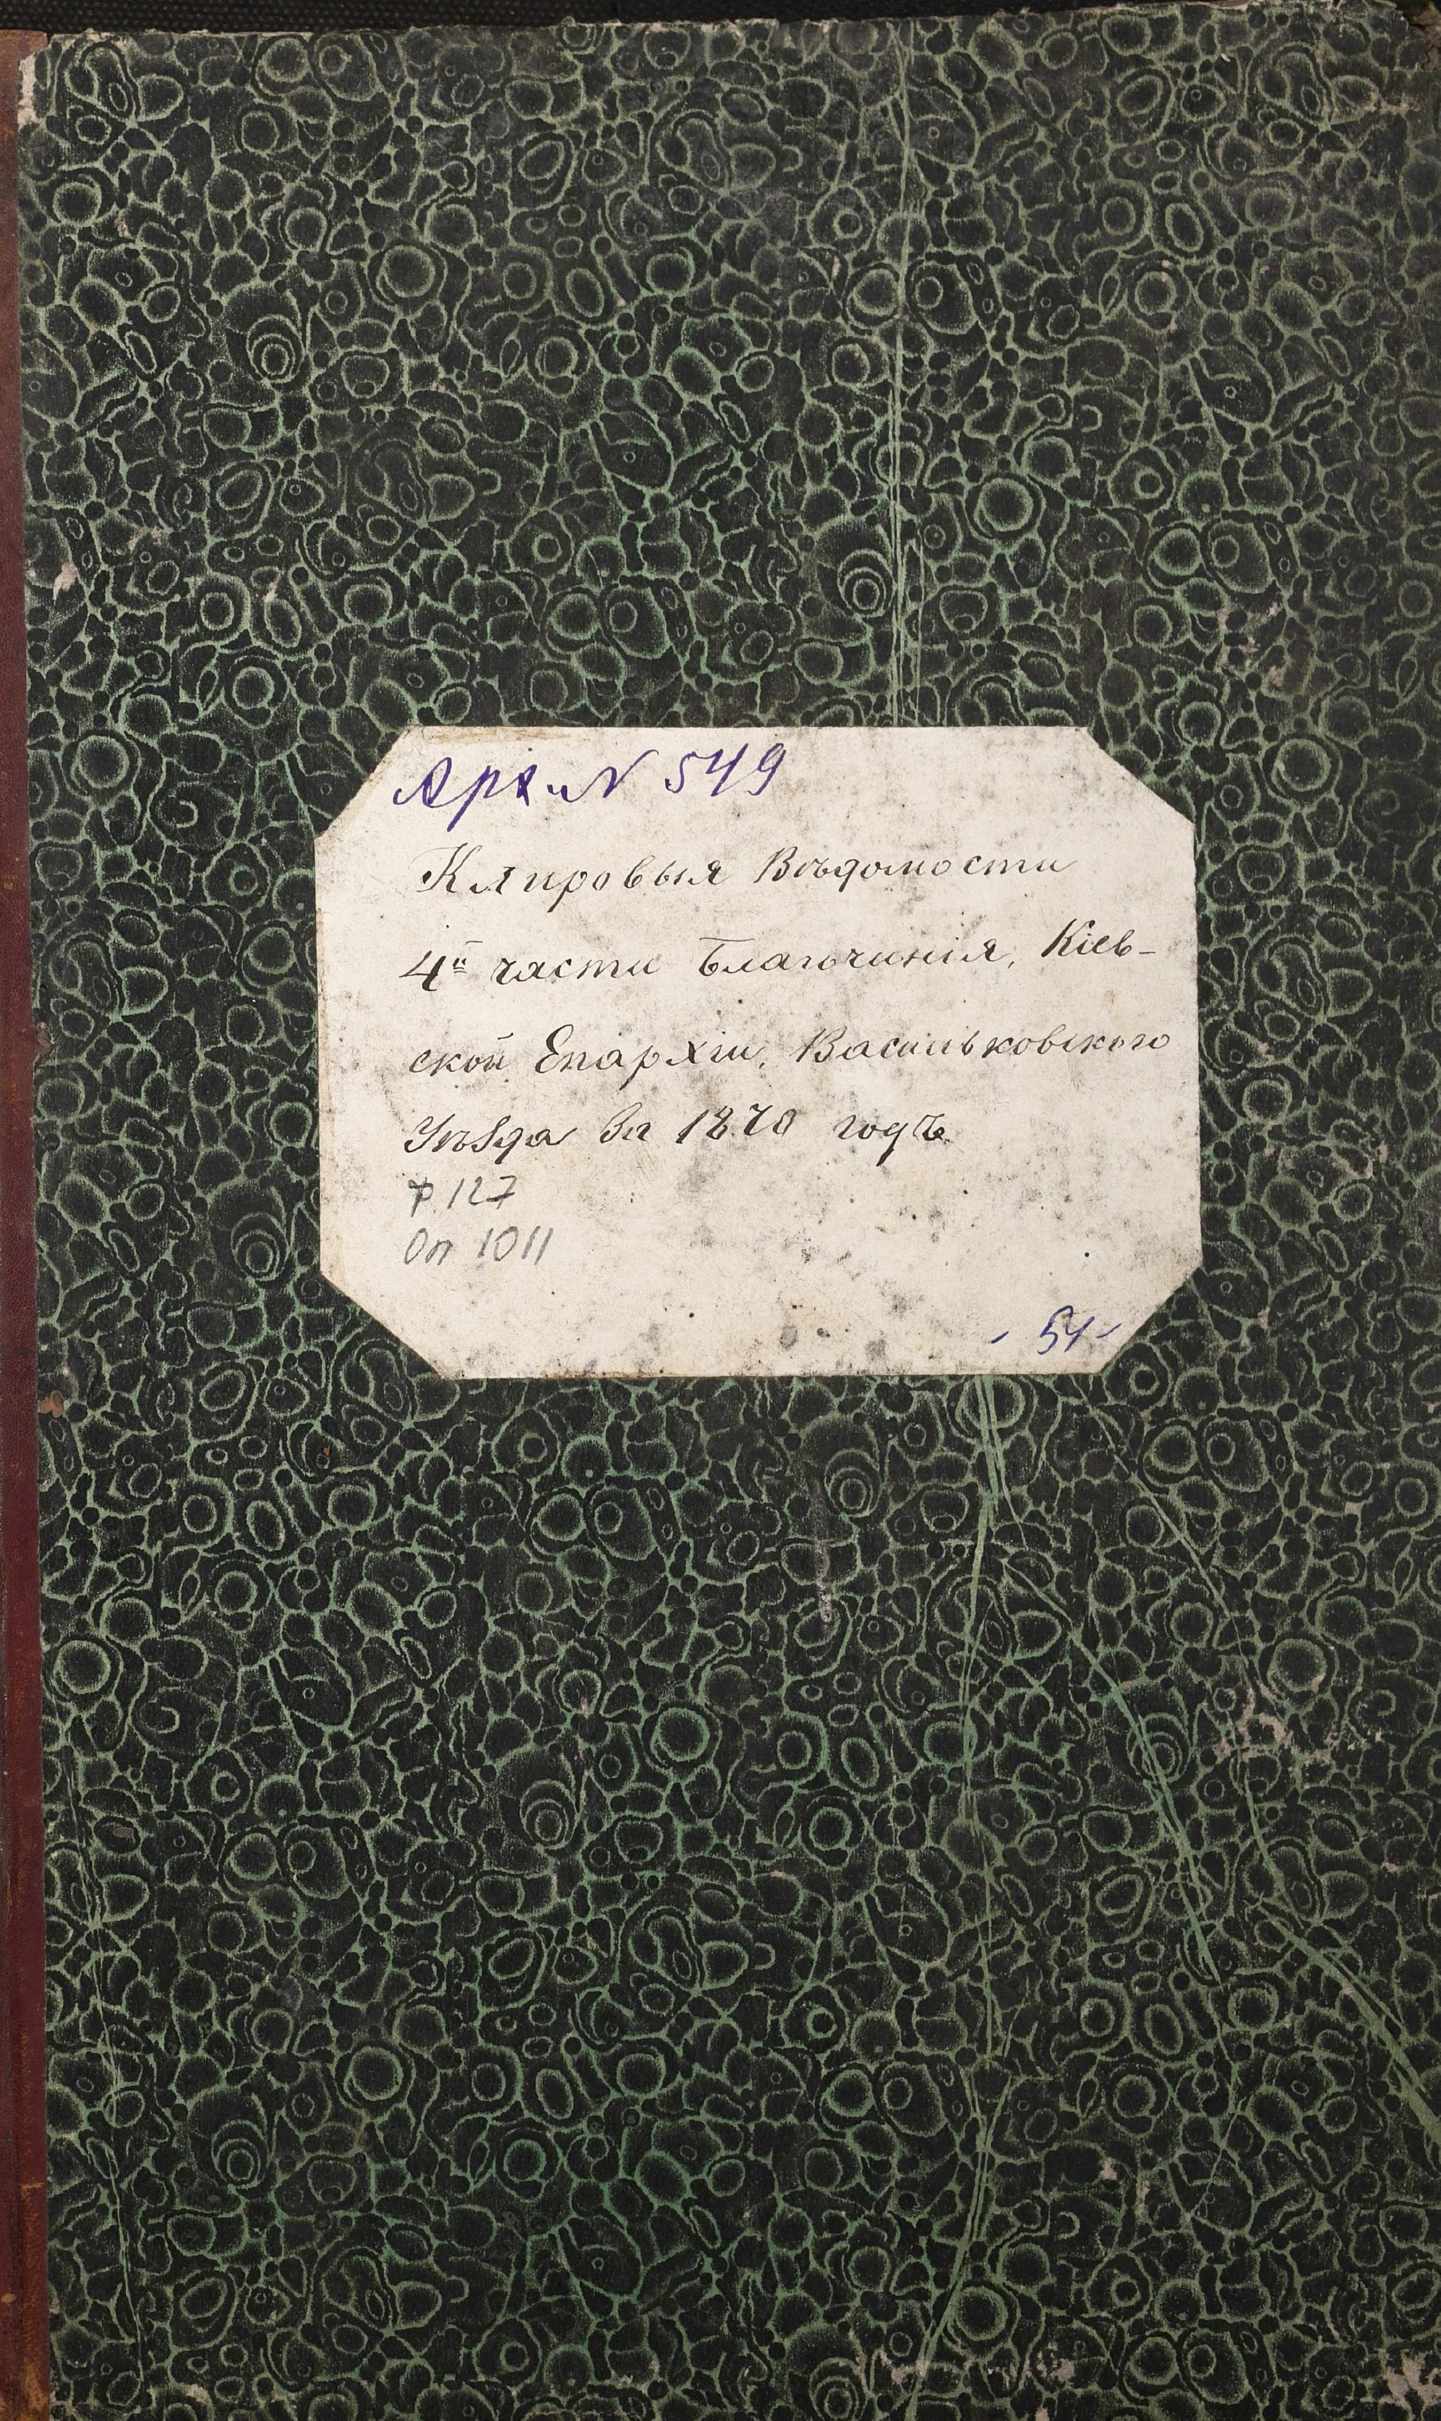 Арх. № 549
Клировыя Вѣдомости
4й части Благочинія, Кіев-
ской Епархіи, Васильковского
Уѣзда За 1870 годъ
Ф. 127
Оп 1011
- 54 -